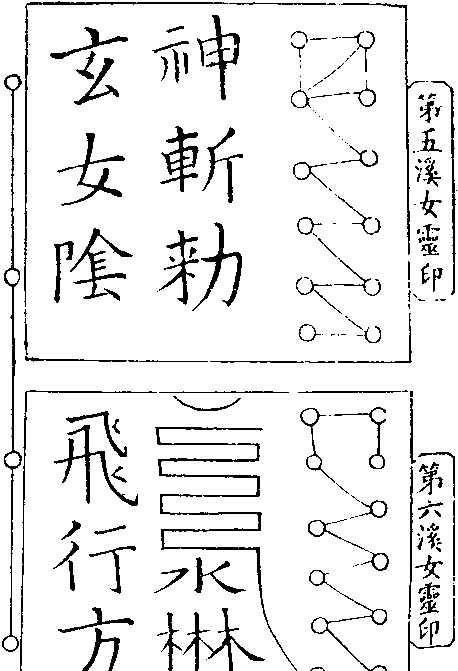 第五溪女靈印
神斬勑
玄女陰
第六溪女靈印
水
飛行方